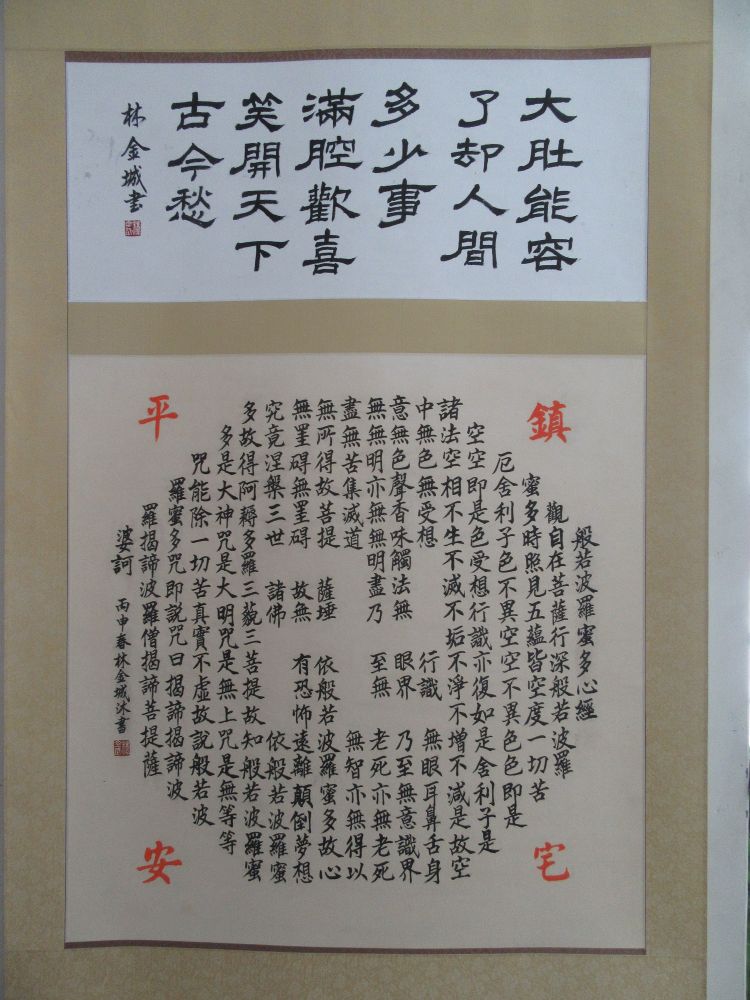 大肚能容
了却人間
多少事
滿腔歡喜
笑開天下
古今愁
林金城書
鎮宅
般若波羅蜜多心經
觀自在菩薩行深般若波羅
蜜多時照見五蘊皆空度一切苦
厄舍利子色不異空空不異色色即是
空空即是色受想行識亦復如是舍利子是
諸法空相不生不滅不垢不淨不增不減是故空
中無色無受想 行識 無眼耳鼻舌身
意無色聲香味觸法無 眼界 乃至無意識界
無無明亦無無明盡乃 至無 老死亦無老死
盡無苦集滅道 無智亦無得以
無所得故菩提 薩埵 依般若波羅蜜多故心
無罣碍無罣碍 故無 有恐怖遠離顛倒夢想
究竟涅槃三世 諸佛 依般若波羅蜜
多故得阿耨多羅三藐三菩提故知般若波羅蜜
多是大神咒是大明咒是無上咒是無等等
咒能除一切苦真實不虛故說般若波
羅蜜多咒即說咒曰揭諦揭諦波
羅揭諦波羅僧揭諦菩提薩
婆訶 丙申春林金城沐書
平安